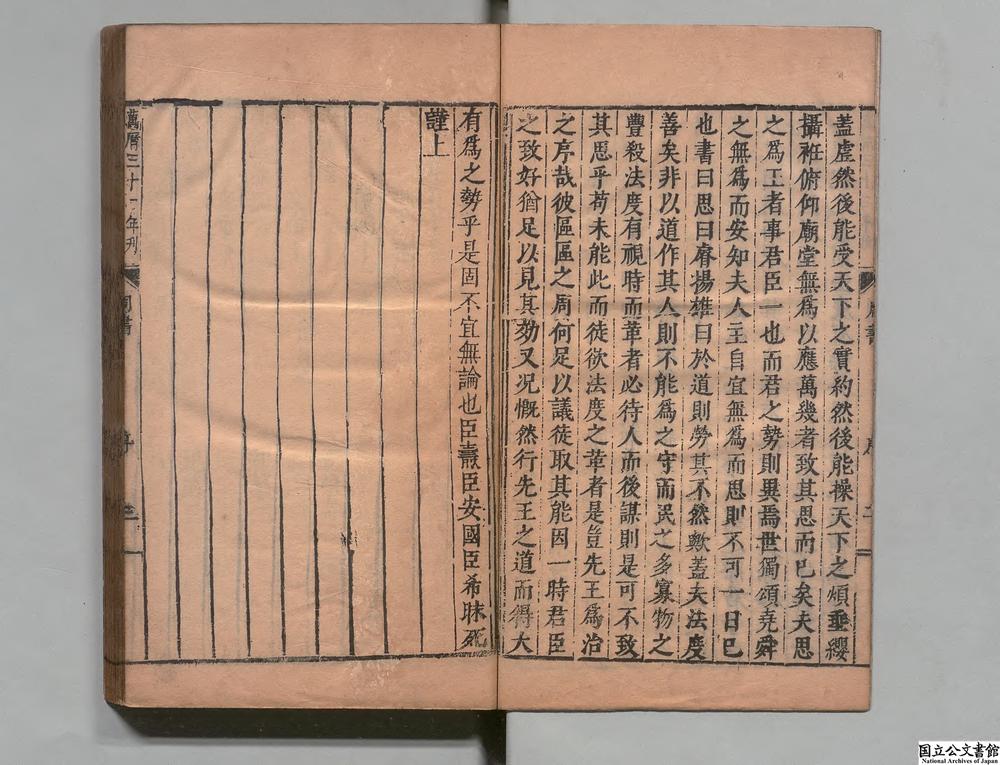 蓋虛然後能受天下之實約然後能操天下之煩垂纓
攝袵俯仰廟堂無爲以應萬幾者致其思而已矣夫思
之爲王者事君臣一也而君之勢則異焉世獨頌堯舜
之無爲而安知夫人主自宜無爲而思則不可一日已
也書曰思曰睿揚雄曰於道則勞其不然歟蓋夫法度
善矣非以道作其人則不能爲之守而民之多寡物之
豐殺法度有視時而革者必待人而後謀則是可不致
其思乎苟未能此而徒欲法度之革者是豈先王爲治
之序哉彼區區之周何足以議徒取其能因一時君臣
之致好猶足以見其効又况慨然行先王之道而得大
有爲之勢乎是固不宜無論也臣燾臣安國臣希昧死
謹上
周書 序 二
萬曆三十一年刊 周書 序 三
国立公文書館
National Archives of Japan